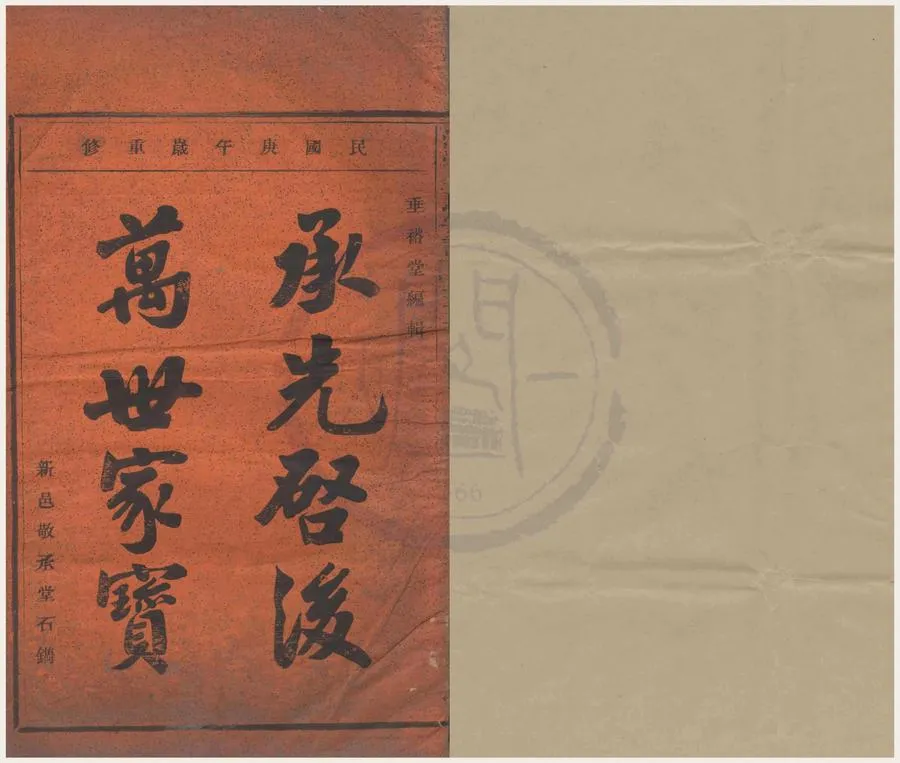 民國庚午歲重修
垂裕堂編輯
承光啓後
萬世家寶
新邑敬承堂石鐫